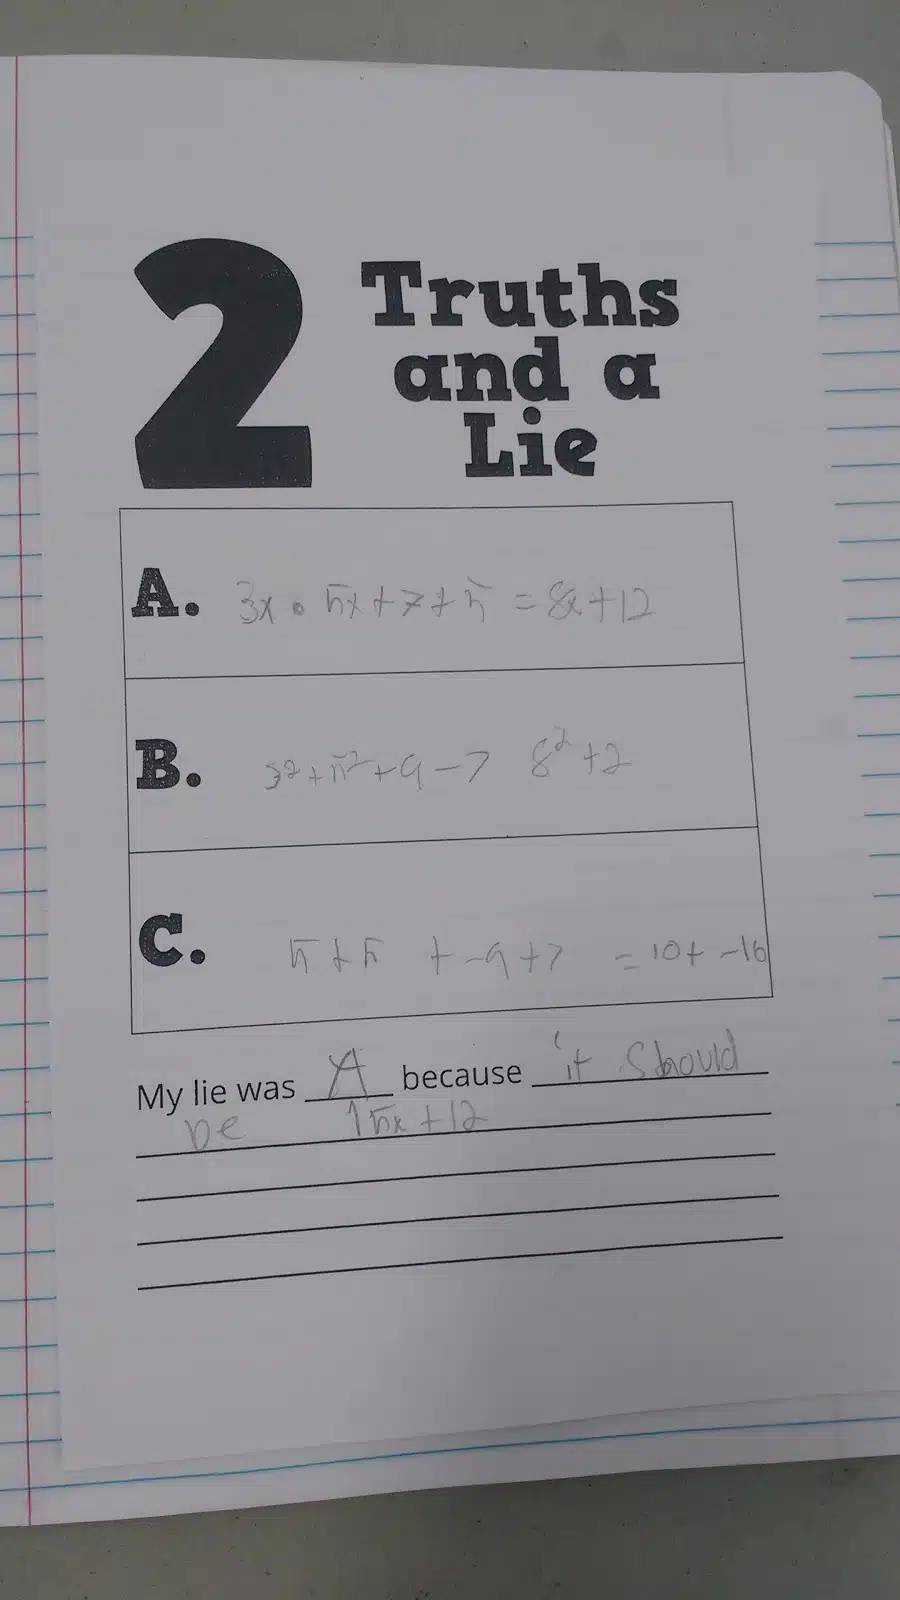 2 Truths
and a
Lie
A. 3x • 5x + 7 + 5 = 8x + 12
B. 3² + 5² + 9 - 7 8² + 2
C. 5 + 5 + -9 + 7 = 10 + -16
My lie was A because it should
be 15x + 12